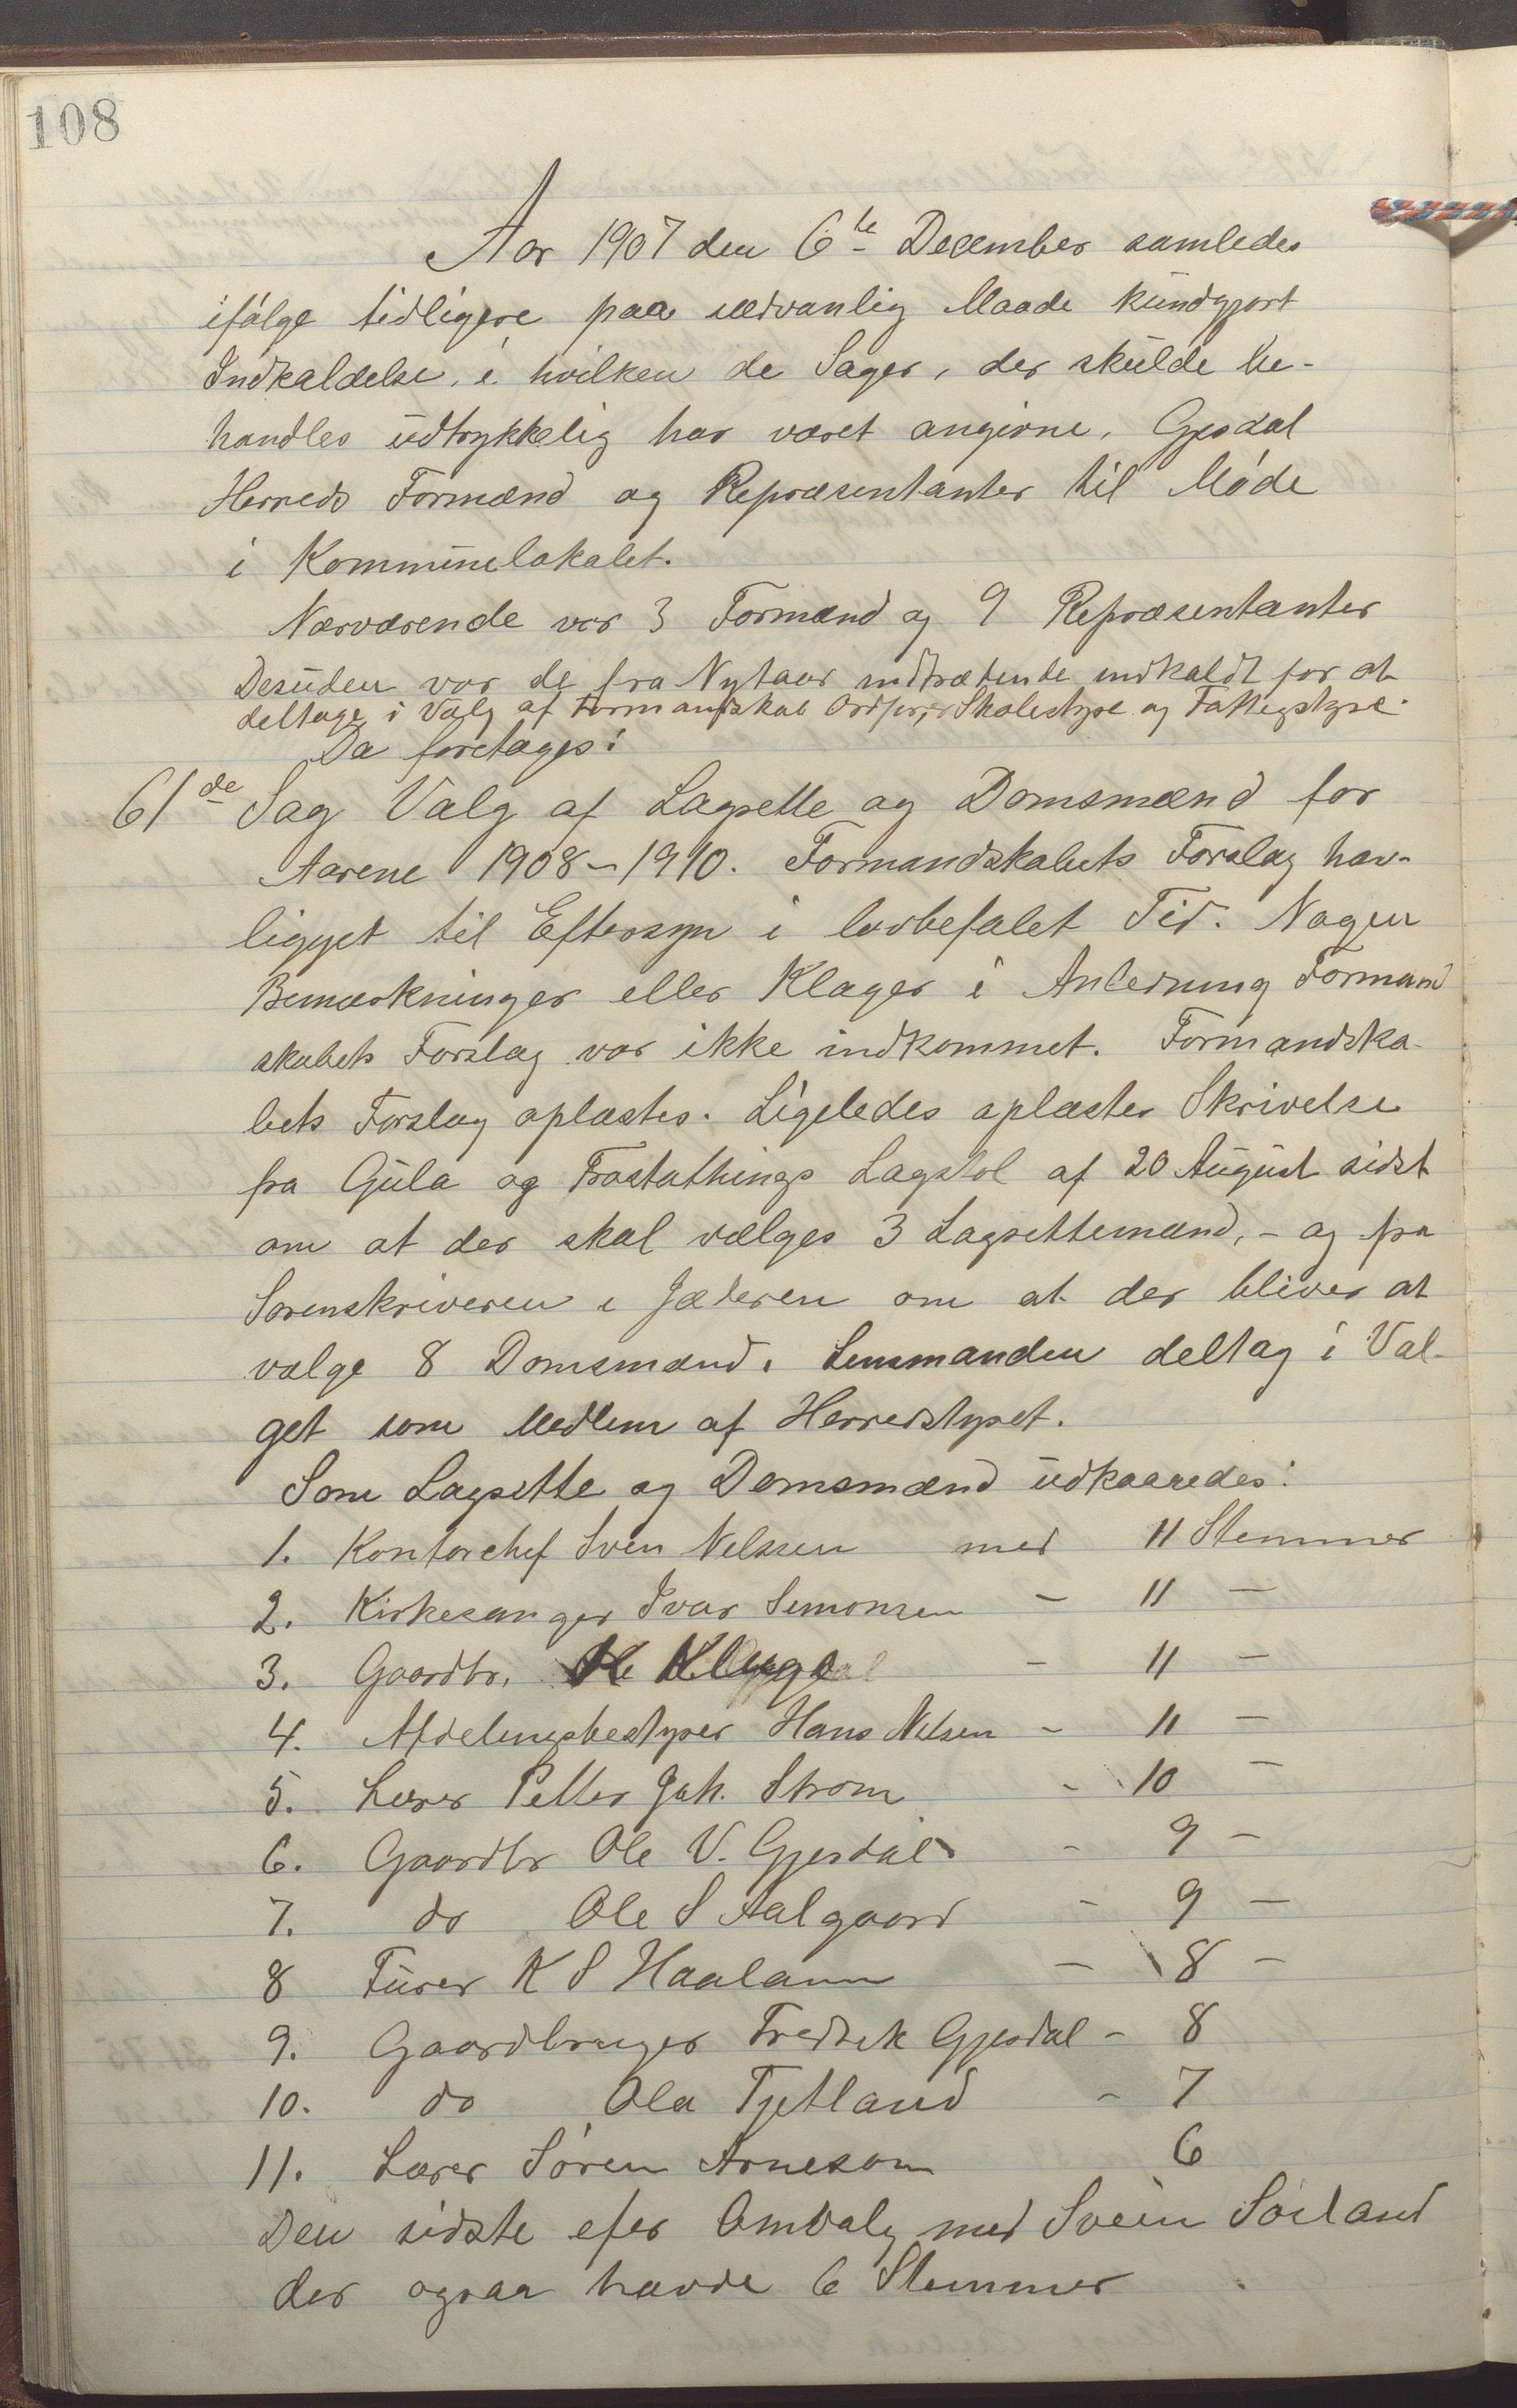 108
Aar 1907 den 6te December samledes
ifølge tidligere paa sædvanlig Maade kundgjort
Indkaldelse, i hvilken de Sager, der skulde be-
handles udtrykkelig har været angivne, Gjesdal
Herreds Formænd og Repræsentanter til Møde
i Kommunelokalet.
Nærværende var 3 Formænd og 9 Repræsentanter
Desuden var de fra Nytaar indtrædende indkaldt for at
deltage i Valg af Formandskab Ordfører Skolestyre og Fattigstyre.
Da foretages:
61de Sag Valg af Lagrette og Domsmænd for
Aarene 1908-1910. Formandskabets Forslag hav-
ligget til Eftersyn i lovbefalet Tid. Nogen
Bemærkninger eller Klager i Anledning Formand
skabets Forslag var ikke indkommet. Formandska-
bets Forslag oplæstes. Ligeledes oplæstes Skrivelse
fra Gula og Frostathings Lagstol af 20 August sidst
om at der skal vælges 3 Lagrettemænd, - og fra
Sorenskriveren i Jæderen om at der bliver at
vælge 8 Domsmænd. Lensmanden deltog i Val-
get som Medlem af Herredstyret.
Som Lagrette og Domsmænd udkaaredes:
1. Kontorchef Sven Nelssen med 11 Stemmer
2. Kirkesanger Ivar Simonsen - 11 -
3. Gaardbr. Kluge - 11 -
4. Afdelingsbestyrer Hans Nilsen - 11 -
5. Lærer Petter Joh. Strøm - 10 -
6. Gaardbr Ole V. Gjesdal - 9 -
7. do Ole S Aalgaard - 9 -
8 Furer K S Haaland - 8 -
9. Gaardbruger Fredrik Gjesdal - 8
10. do Ola Tjetland - 7
11. Lærer Søren Arneson 6
Den sidste efter Omvalg med Svein Sørland
der ogsaa havde 6 Stemmer